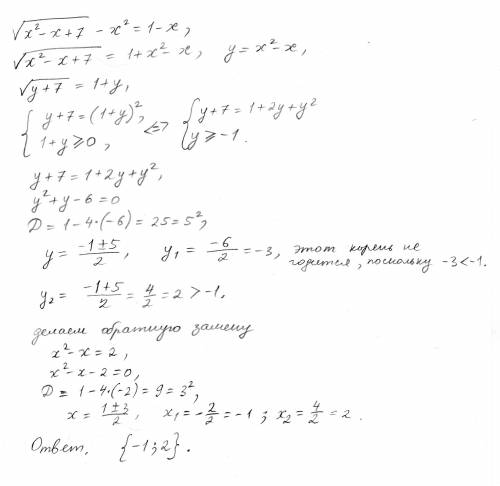 √(x²-x+7) - x² = 1-x,
√(x²-x+7) = 1+x²-x, y = x²-x,
√(y+7) = 1+y,
{ y+7 = (1+y)², 1+y ⩾ 0, <=> { y+7 = 1+2y+y² y ⩾ -1.
y+7 = 1+2y+y²,
y²+y-6 = 0
D = 1-4·(-6) = 25 = 5²,
y = (-1±5)/2, y₁ = -6/2 = -3, этот корень не
годится, поскольку -3<-1.
y₂ = (-1+5)/2 = 4/2 = 2 > -1,
делаем обратную замену
x²-x = 2,
x²-x-2 = 0,
D = 1-4·(-2) = 9 = 3²,
x = (1±3)/2, x₁ = -2/2 = -1; x₂ = 4/2 = 2.
Ответ. {-1;2}.